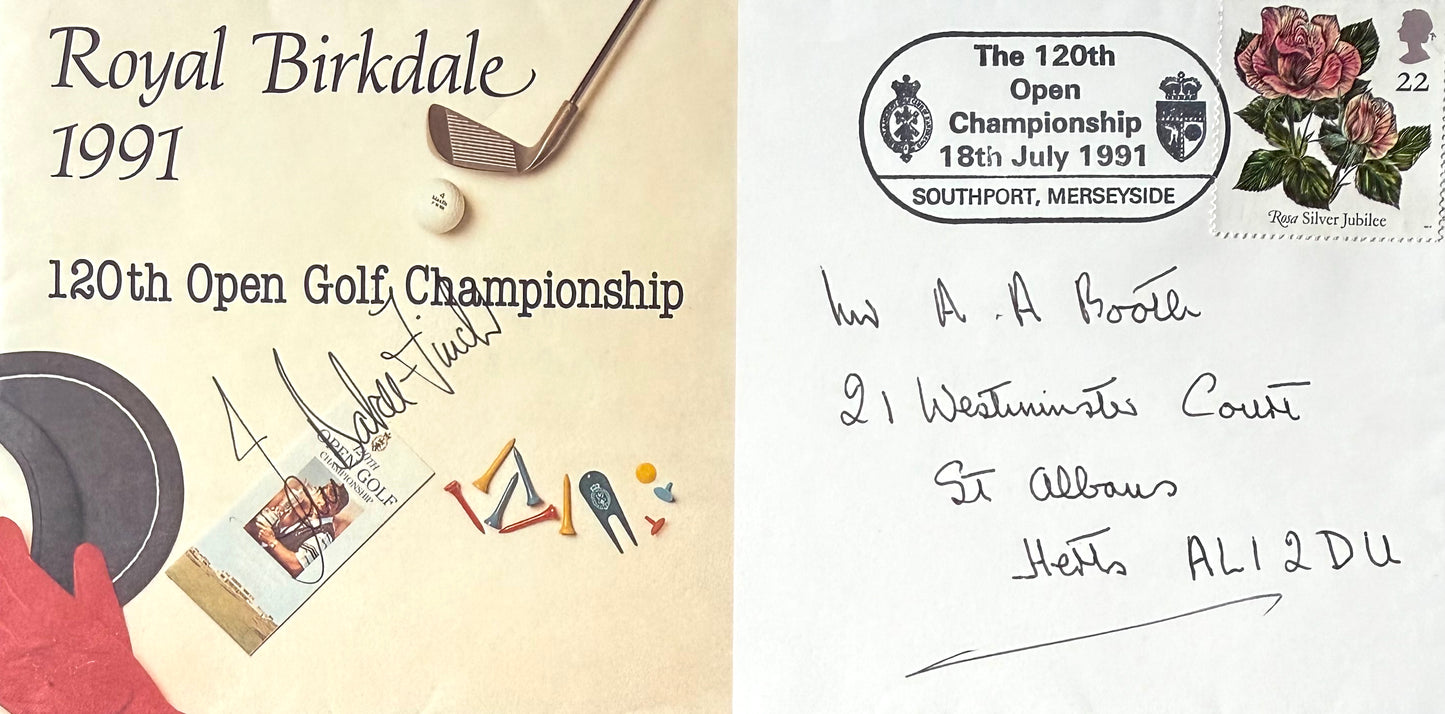 Royal Birkdale
1991
120th Open Golf Championship
120TH
OPEN GOLF
CHAMPIONSHIP
4
The 120th
Open
Championship
18th July 1991
SOUTHPORT, MERSEYSIDE
22
Rosa Silver Jubilee
Mr A. A Booth
21 Westminster Court
St Albans
Herts AL1 2DU